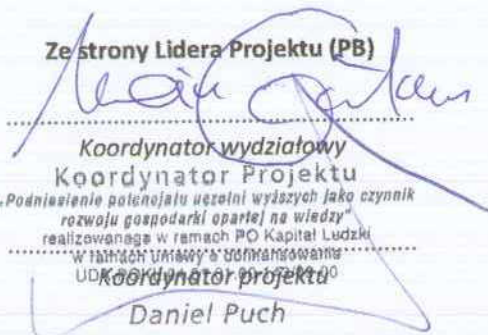 Ze strony Lidera Projektu (PB)
Koordynator wydziałowy
Koordynator Projektu
„Podniesienie potencjału uczelni wyższych jako czynnik
rozwoju gospodarki opartej na wiedzy"
realizowanego w ramach PO Kapitał Ludzki
w ramach umowy o dofinansowanie
Koordynator projektu
Daniel Puch